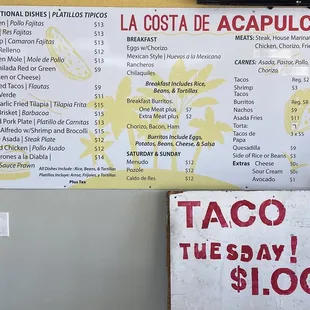 TIONAL DISHES / PLATILLOS TIPICOS
en / Pollo Fajitas $13
p / Camaron Fajitas $13
Relleno $12
en Mole / Mole de Pollo $13
hilada Red or Green $9
ken or Cheese)
ed Tacos / Flautas $9
Verde $11
arlic Fried Tilapia / Tilapia Frita $15
risket / Barbacoa $13
Pork Plate / Platillo de Carnitas $13
Alfredo w/Shrimp and Broccoli $15
e Asada / Steak Plate $13
d Chicken / Pollo Asado $12
rones a la Diabla / $14
Sauce Prawn
All Dishes Include: Rice, Beans, & Tortillas
Platillos Incluye: Arroz, Frijoles, y Tortillas
Plus Tax
LA COSTA DE ACAPULC
BREAKFAST
Eggs w/Chorizo
Mexican Style / Huevos a la Mexicano
Rancheros
Chilaquiles
Breakfast Includes Rice,
Beans, & Tortillas
Breakfast Burritos:
One Meat plus $7
Extra Meat plus $2
Chorizo, Bacon, Ham
Burritos Include: Eggs,
Potatoes, Beans, Cheese, & Salsa
SATURDAY & SUNDAY
Menudo $12
Pozole $12
Caldo de Res $12
MEATS: Steak, House Marina
Chicken, Chorizo, Fri
CARNES: Asada, Pastor, Pollo
Chorizo
Tacos
Shrimp
Tacos
Burritos Reg
Nachos $9
Asada Fries $11
Torta: $9
Tacos de $3
Papa
Quesadilla $9
Side of Rice or Beans $3
Extras Cheese $
Sour Cream $
Avocado $1
TACO
TUESDAY!
$1.00